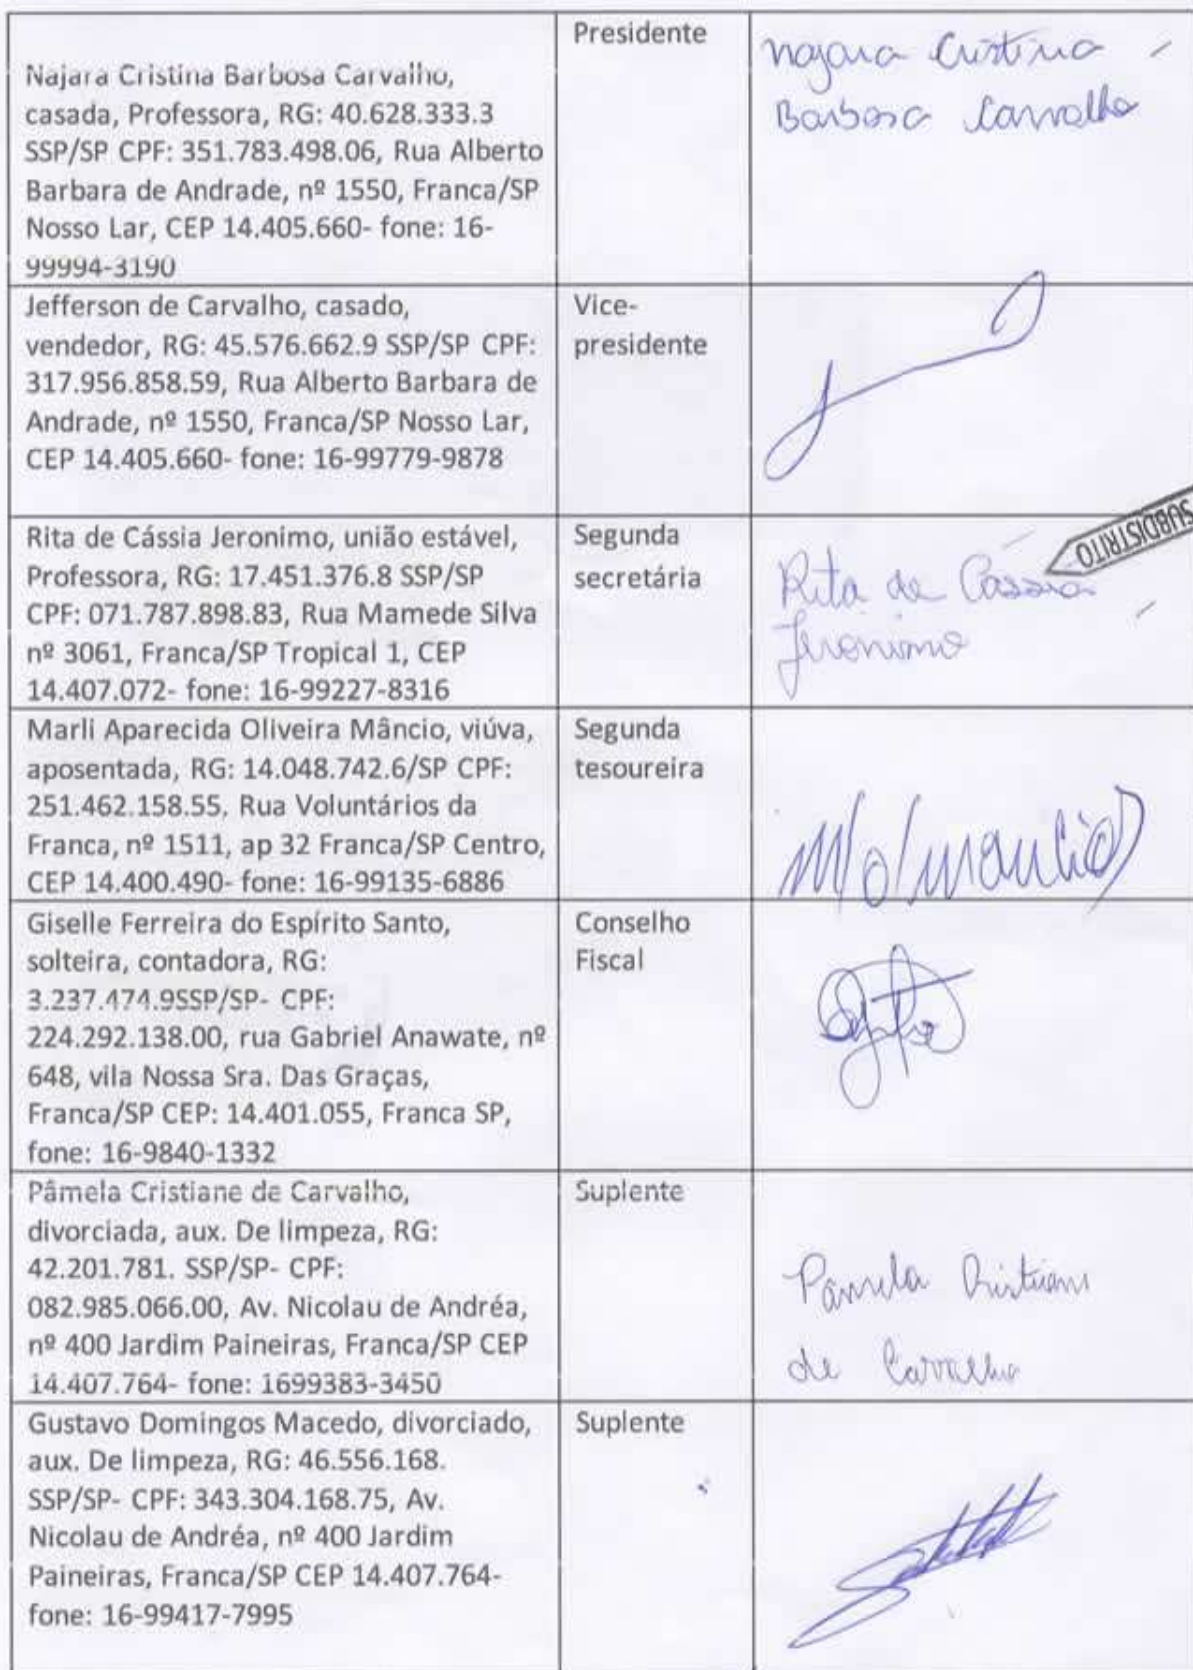 Najara Cristina Barbosa Carvalho,
casada, Professora, RG: 40.628.333.3
SSP/SP CPF: 351.783.498.06, Rua Alberto
Barbara de Andrade, nº 1550, Franca/SP
Nosso Lar, CEP 14.405.660- fone: 16-
99994-3190
Presidente
Najara Cristina
Barbosa Carvalho
Jefferson de Carvalho, casado,
vendedor, RG: 45.576.662.9 SSP/SP CPF:
317.956.858.59, Rua Alberto Barbara de
Andrade, nº 1550, Franca/SP Nosso Lar,
CEP 14.405.660- fone: 16-99779-9878
Vice-
presidente
SUBDISTRITO
Rita de Cássia Jeronimo, união estável,
Professora, RG: 17.451.376.8 SSP/SP
CPF: 071.787.898.83, Rua Mamede Silva
nº 3061, Franca/SP Tropical 1, CEP
14.407.072- fone: 16-99227-8316
Segunda
secretária
Rita de Cássia
Jeronimo
Marli Aparecida Oliveira Mâncio, viúva,
aposentada, RG: 14.048.742.6/SP CPF:
251.462.158.55, Rua Voluntários da
Franca, nº 1511, ap 32 Franca/SP Centro,
CEP 14.400.490- fone: 16-99135-6886
Segunda
tesoureira
Giselle Ferreira do Espírito Santo,
solteira, contadora, RG:
3.237.474.9SSP/SP- CPF:
224.292.138.00, rua Gabriel Anawate, nº
648, vila Nossa Sra. Das Graças,
Franca/SP CEP: 14.401.055, Franca SP,
fone: 16-9840-1332
Conselho
Fiscal
Pâmela Cristiane de Carvalho,
divorciada, aux. De limpeza, RG:
42.201.781. SSP/SP- CPF:
082.985.066.00, Av. Nicolau de Andréa,
nº 400 Jardim Paineiras, Franca/SP CEP
14.407.764- fone: 1699383-3450
Suplente
Pâmela Cristiane
de Carvalho
Gustavo Domingos Macedo, divorciado,
aux. De limpeza, RG: 46.556.168.
SSP/SP- CPF: 343.304.168.75, Av.
Nicolau de Andréa, nº 400 Jardim
Paineiras, Franca/SP CEP 14.407.764-
fone: 16-99417-7995
Suplente